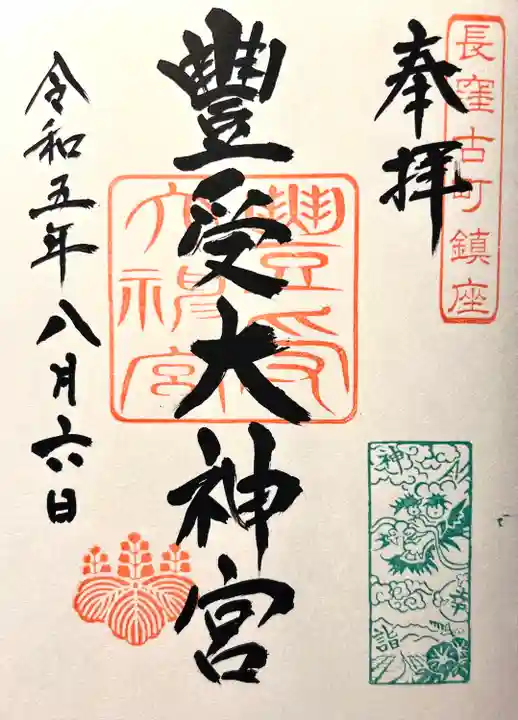 長窪古町鎮座
奉拝
豊受
大神宮
豐受大神宮
令和五年八月六日
神
幸
詣